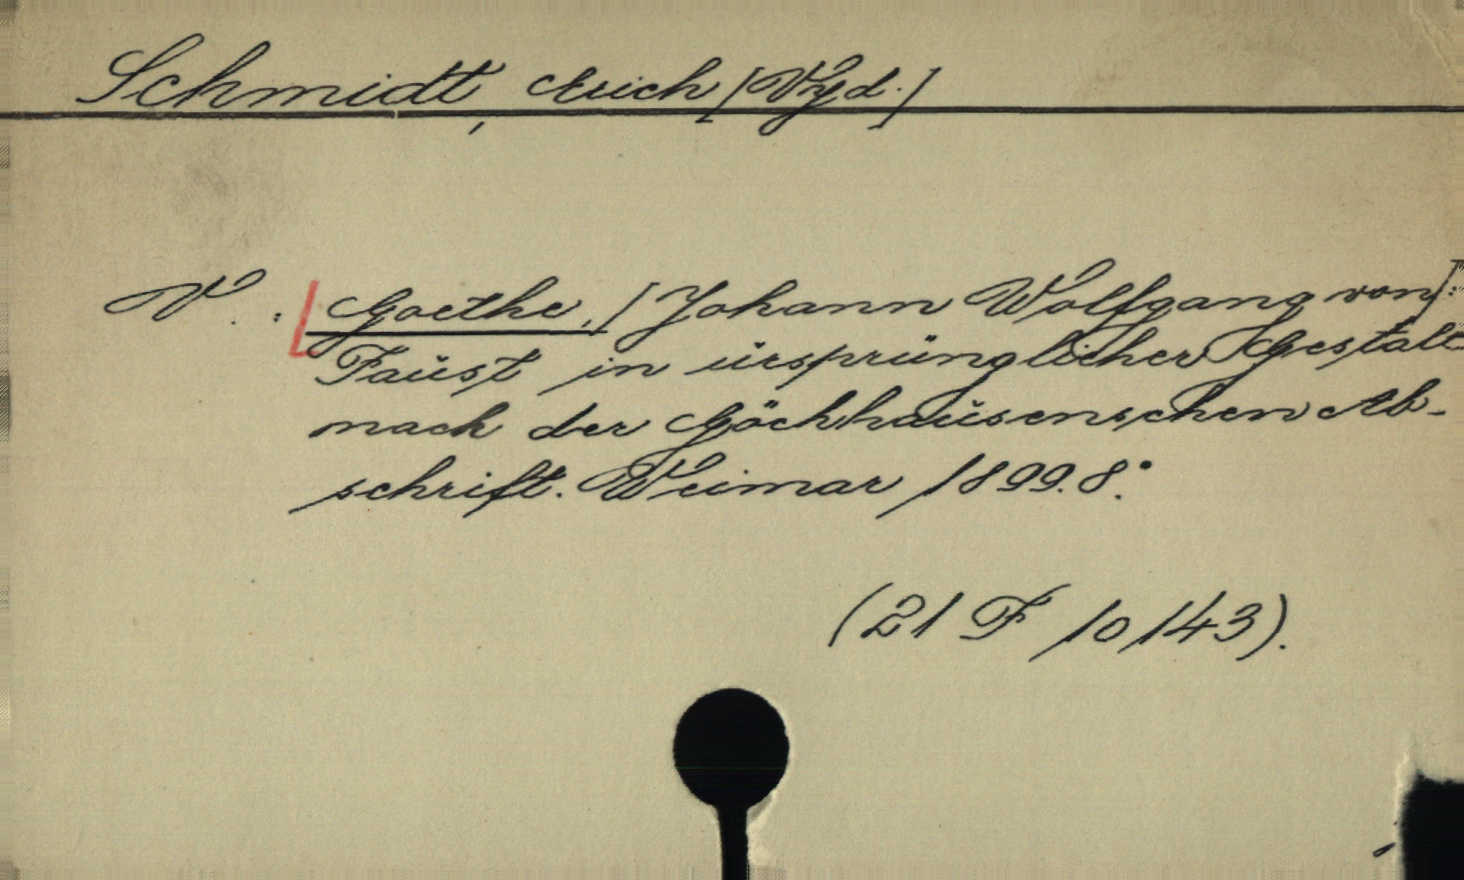 Schmidt, Erich [Hgd.]
V. : Goethe, [Johann Wolfgang von]:
Faust in ursprünglicher Gestalt
nach der Göchhausenschen Ab-
schrift. Weimar 1899. 8°.
(21 F 10143).